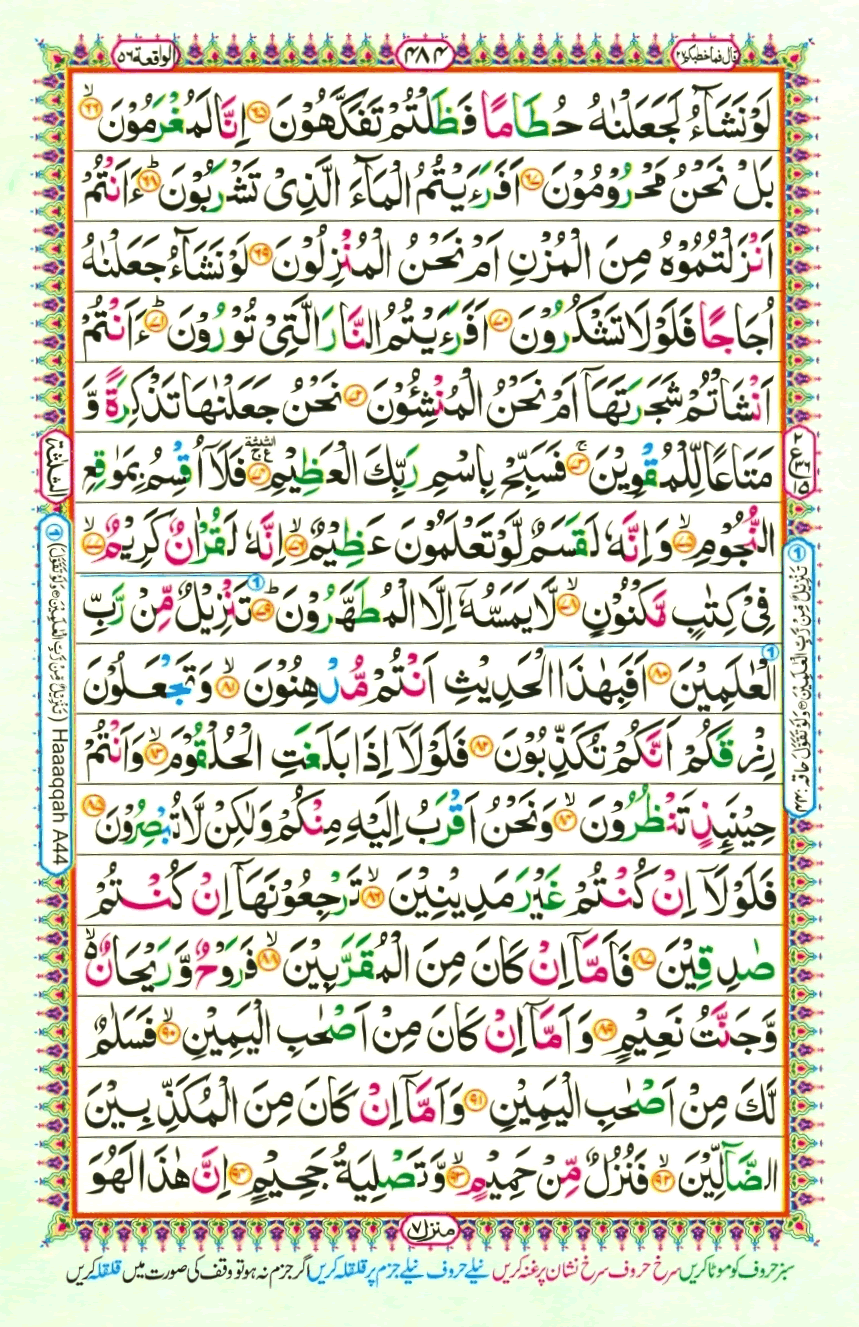 قال فما خطبكم ٢٧
٤٨٤
الواقعة ٥٦
لَوْ نَشَآءُ لَجَعَلْنٰهُ حُطَامًا فَظَلْتُمْ تَفَكَّهُوْنَ ۝٦٥ اِنَّا لَمُغْرَمُوْنَ ۙ۝٦٦
بَلْ نَحْنُ مَحْرُوْمُوْنَ ۝٦٧ اَفَرَءَيْتُمُ الْمَآءَ الَّذِىْ تَشْرَبُوْنَ ؕ۝٦٨ ءَاَنْتُمْ
اَنْزَلْتُمُوْهُ مِنَ الْمُزْنِ اَمْ نَحْنُ الْمُنْزِلُوْنَ ۝٦٩ لَوْ نَشَآءُ جَعَلْنٰهُ
اُجَاجًا فَلَوْلَا تَشْكُرُوْنَ ۝٧٠ اَفَرَءَيْتُمُ النَّارَ الَّتِىْ تُوْرُوْنَ ؕ۝٧١ ءَاَنْتُمْ
اَنْشَاْتُمْ شَجَرَتَهَاۤ اَمْ نَحْنُ الْمُنْشِئُوْنَ ۝٧٢ نَحْنُ جَعَلْنٰهَا تَذْكِرَةً وَّ
مَتَاعًا لِّلْمُقْوِيْنَ ۚ۝٧٣ فَسَبِّحْ بِاسْمِ رَبِّكَ الْعَظِيْمِ ۝٧٤ فَلَاۤ اُقْسِمُ بِمَوٰقِعِ
النُّجُوْمِ ۙ۝٧٥ وَاِنَّهٗ لَقَسَمٌ لَّوْ تَعْلَمُوْنَ عَظِيْمٌ ۙ۝٧٦ اِنَّهٗ لَقُرْاٰنٌ كَرِيْمٌ ۙ۝٧٧
فِىْ كِتٰبٍ مَّكْنُوْنٍ ۙ۝٧٨ لَّا يَمَسُّهٗۤ اِلَّا الْمُطَهَّرُوْنَ ؕ۝٧٩ تَنْزِيْلٌ مِّنْ رَّبِّ
الْعٰلَمِيْنَ ۝٨٠ اَفَبِهٰذَا الْحَدِيْثِ اَنْتُمْ مُّدْهِنُوْنَ ۙ۝٨١ وَتَجْعَلُوْنَ
رِزْقَكُمْ اَنَّكُمْ تُكَذِّبُوْنَ ۝٨٢ فَلَوْلَاۤ اِذَا بَلَغَتِ الْحُلْقُوْمَ ۙ۝٨٣ وَاَنْتُمْ
حِيْنَئِذٍ تَنْظُرُوْنَ ۙ۝٨٤ وَنَحْنُ اَقْرَبُ اِلَيْهِ مِنْكُمْ وَلٰكِنْ لَّا تُبْصِرُوْنَ ۝٨٥
فَلَوْلَاۤ اِنْ كُنْتُمْ غَيْرَ مَدِيْنِيْنَ ۙ۝٨٦ تَرْجِعُوْنَهَاۤ اِنْ كُنْتُمْ
صٰدِقِيْنَ ۝٨٧ فَاَمَّاۤ اِنْ كَانَ مِنَ الْمُقَرَّبِيْنَ ۙ۝٨٨ فَرَوْحٌ وَّرَيْحَانٌ ۙ۬
وَّجَنَّتُ نَعِيْمٍ ۝٨٩ وَاَمَّاۤ اِنْ كَانَ مِنْ اَصْحٰبِ الْيَمِيْنِ ۙ۝٩٠ فَسَلٰمٌ
لَّكَ مِنْ اَصْحٰبِ الْيَمِيْنِ ۝٩١ وَاَمَّاۤ اِنْ كَانَ مِنَ الْمُكَذِّبِيْنَ
الضَّآلِّيْنَ ۙ۝٩٢ فَنُزُلٌ مِّنْ حَمِيْمٍ ۙ۝٩٣ وَّتَصْلِيَةُ جَحِيْمٍ ۝٩٤ اِنَّ هٰذَا لَهُوَ
منزل ٧
سبز حروف کو موٹا کریں سرخ حروف سرخ نشان پر غنہ کریں نیلے حروف نیلے جزم پر قلقلہ کریں اگر جزم نہ ہو تو وقف کی صورت میں قلقلہ کریں
الثلثة
(تَنْزِيْلٌ مِّنْ رَّبِّ الْعٰلَمِيْنَ ۝ وَلَوْ تَقَوَّلَ) Haaaqqah A44
تَنْزِيْلٌ مِّنْ رَّبِّ الْعٰلَمِيْنَ ۝ وَلَوْ تَقَوَّلَ حاقه: ٤٤